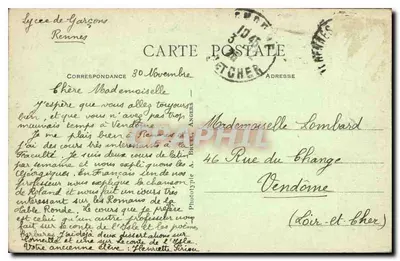 Lycée de Garçons
Rennes
CARTE POSTALE
CORRESPONDANCE
ADRESSE
30 Novembre
Chère Mademoiselle
J'espère que vous allez toujours
bien, et que vous n'avez pas trop
mauvais temps à Vendôme
Je me plais bien à Rennes
j'ai des cours très intéressants à la
Faculté. Je suis deux cours de Latin
par semaine et nous expliquons les
Géorgiques. En Français un de nos
professeur nous explique la chanson
de Roland et nous fait un cours très
intéressant sur les Romans de la
Table Ronde. Le cours que je préfère
est celui qu'un autre professeur nous
fait sur le conte de l'Isle et les poèmes
barbares. J'ai déjà deux dissertations sur
et une sur Leconte de l'Isle
Votre ancienne élève : Henriette
Phototype A. Bruel, Angers
Mademoiselle Lombard
46 Rue du Change
Vendôme
(Loir-et-Cher)
ET CHER
CPARAMA